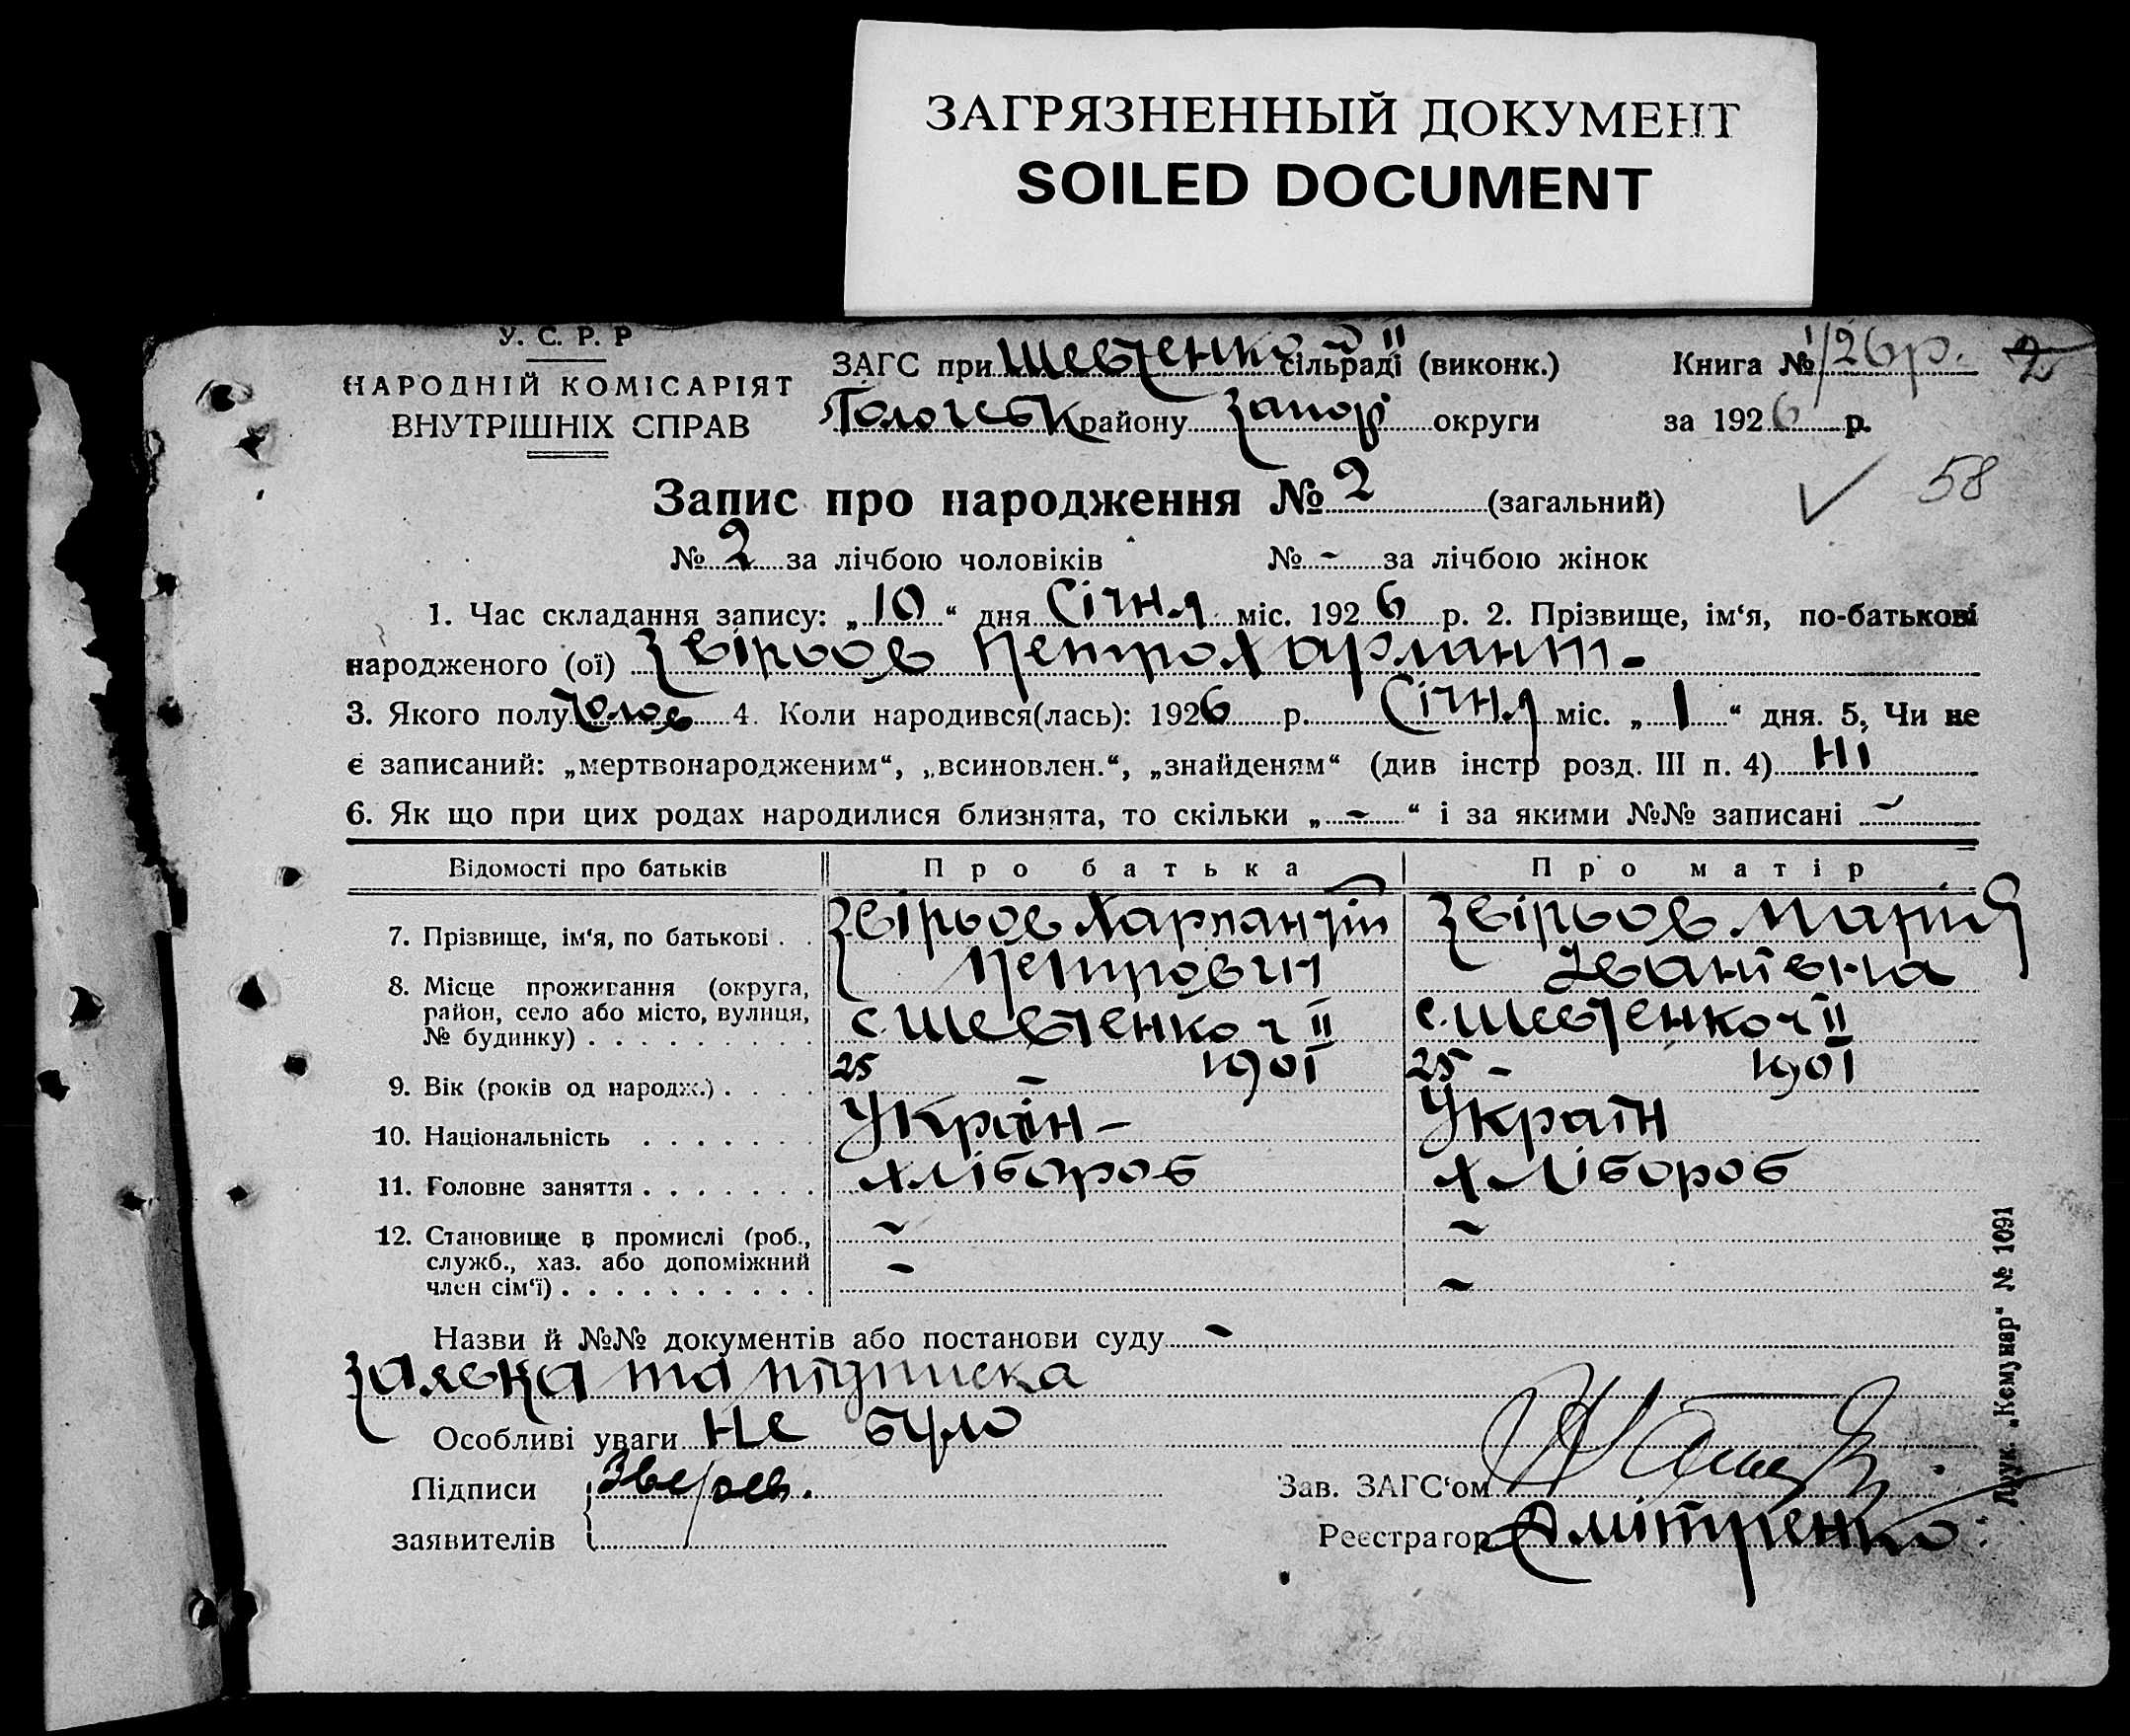 ЗАГРЯЗНЕННЫЙ ДОКУМЕНТ
SOILED DOCUMENT
У. С. Р. Р
НАРОДНІЙ КОМІСАРІЯТ
ВНУТРІШНІХ СПРАВ
ЗАГС при Шевченко II сільраді (виконк.)
району Запор округи
Книга № 1/26р. 2
за 1926 р.
58
Запис про народження № 2 (загальний)
№ 2 за лічбою чоловіків № - за лічбою жінок
1. Час складання запису: „10“ дня Січня міс. 1926 р. 2. Прізвище, ім‘я, по-батькові
народженого (ої) Звірьов Петро Харлант-
3. Якого полу Чолов 4. Коли народився(лась): 1926 р. Січня міс. „1“ дня. 5. Чи не
є записаний: „мертвонародженим“, „всиновлен.“, „знайденям“ (див інстр розд. III п. 4) Ні
6. Як що при цих родах народилися близнята, то скільки „-“ і за якими №№ записані -
Відомості про батьків Про батька Про матір
7. Прізвище, ім‘я, по батькові . . Звірьов Петрович Звірьов Мария Іванівна
8. Місце проживання (округа, район, село або місто, вулиця, № будинку) . . . . . . . . . . с. Шевченко ч II с. Шевченко ч II
9. Вік (років од народж.) . . . . 25 - 1901 25 - 1901
10. Національність . . . . . . . Україн- Україн
11. Головне заняття . . . . . . . хлібороб хлібороб
12. Становище в промислі (роб., служб., хаз. або допоміжний член сім‘ї) . . . . . . . . . . - - - -
Назви й №№ документів або постанови суду -
заявка та підписка
Особливі уваги Не було
Підписи заявителів Зверьев.
Зав. ЗАГС‘ом
Реєстратор Дмітренко
Друк. „Комунар“ № 1091